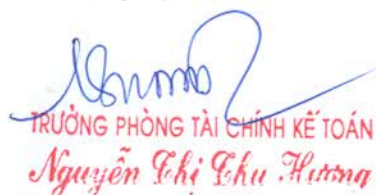 TRƯỞNG PHÒNG TÀI CHÍNH KẾ TOÁN
Nguyễn Thị Thu Hương